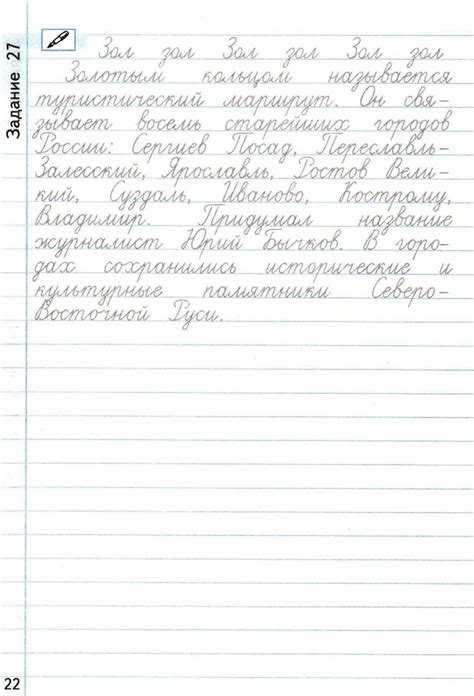 Задание 27
Зол зол Зол зол Зол зол
Золотым кольцом называется
туристический маршрут. Он свя-
зывает восемь старейших городов
России: Сергиев Посад, Переславль-
Залесский, Ярославль, Ростов Вели-
кий, Суздаль, Иваново, Кострому,
Владимир. Придумал название
журналист Юрий Бычков. В горо-
дах сохранились исторические и
культурные памятники Северо-
Восточной Руси.
22